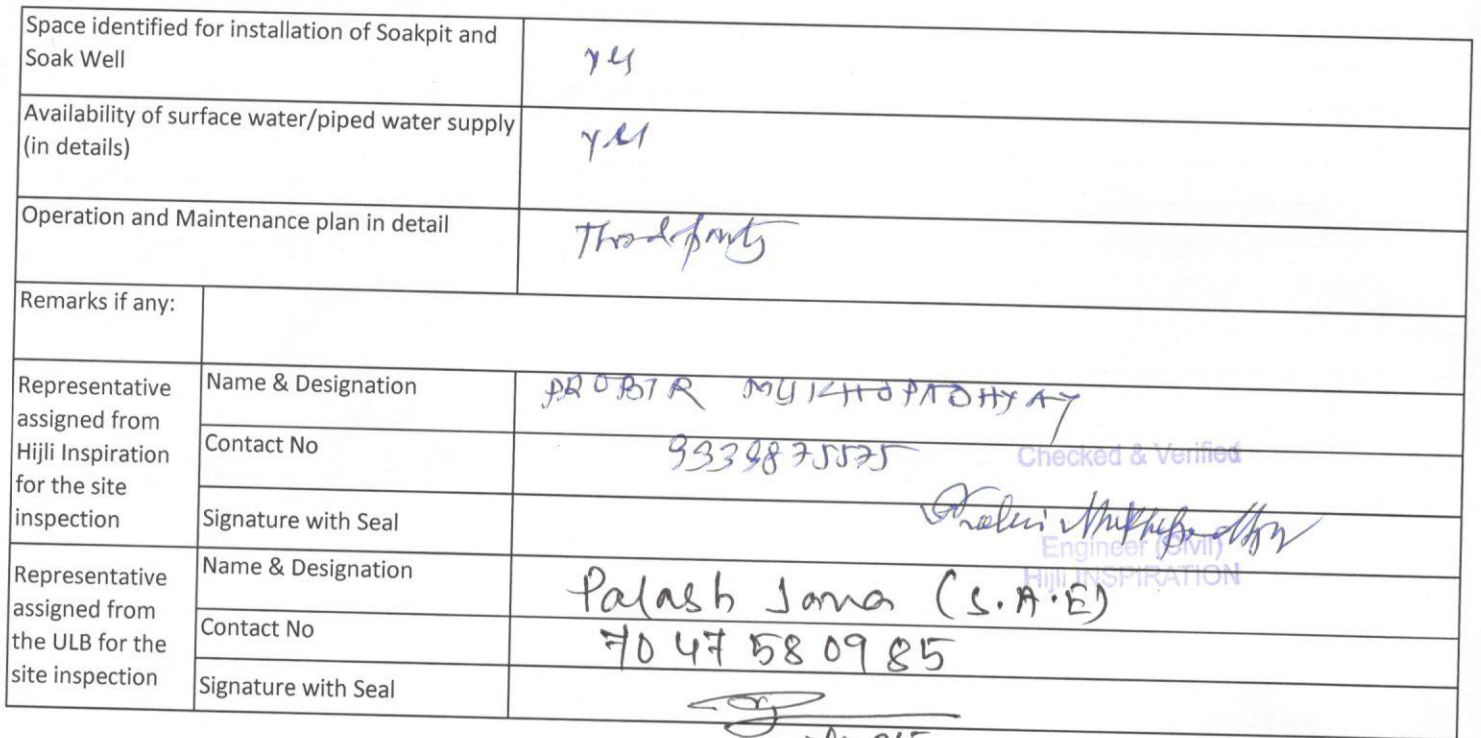 Space identified for installation of Soakpit and
Soak Well
yes
Availability of surface water/piped water supply
(in details)
yes
Operation and Maintenance plan in detail
Third party
Remarks if any:
Representative
assigned from
Hijli Inspiration
for the site
inspection
Name & Designation
PROBIR MUKHOPADHYAY
Contact No
9339875575
Checked & Verified
Signature with Seal
Engineer (Civil)
Hijli INSPIRATION
Representative
assigned from
the ULB for the
site inspection
Name & Designation
Palash Jana (S.A.E)
Contact No
7047580985
Signature with Seal